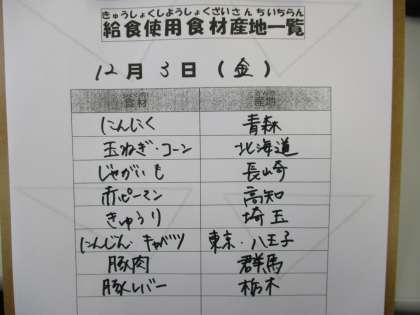 きゅうしょくしようしょくざいさんちいちらん
給食使用食材産地一覧
12月 3日 (金)
食材 産地
にんにく 青森
玉ねぎ・コーン 北海道
じゃがいも 長崎
赤ピーマン 高知
きゅうり 埼玉
にんじん・キャベツ 東京・八王子
豚肉 群馬
豚レバー 栃木